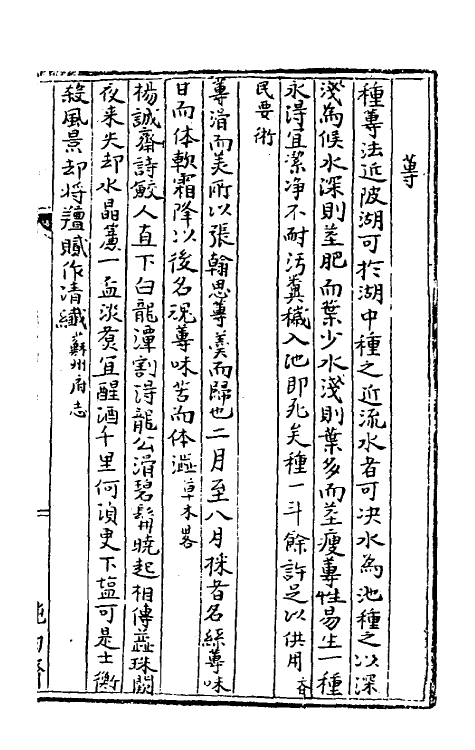 蓴
種蓴法近陂湖可扵湖中種之近流水者可决水為池種之以深
淺為候水深則莖肥而葉少水淺則葉多而莖瘦蓴性易生一種
永得宜㓗净不耐汚糞穢入池即死矣種一斗餘許足以供用齊
民要術
蓴滑而美所以張翰思蓴羮而歸也二月至八月採者名絲蓴味
甘而体軟霜降以後名瑰蓴味苦而体澁草木畧
楊誠齋詩鮫人直下白龍潭割得龍公滑碧髯曉起相傳蘂珠闕
夜来失却水晶簾一盃淡煑宜醒酒千里何須更下塩可是士衡
殺風景却將羶膩作清纖蘇州府志